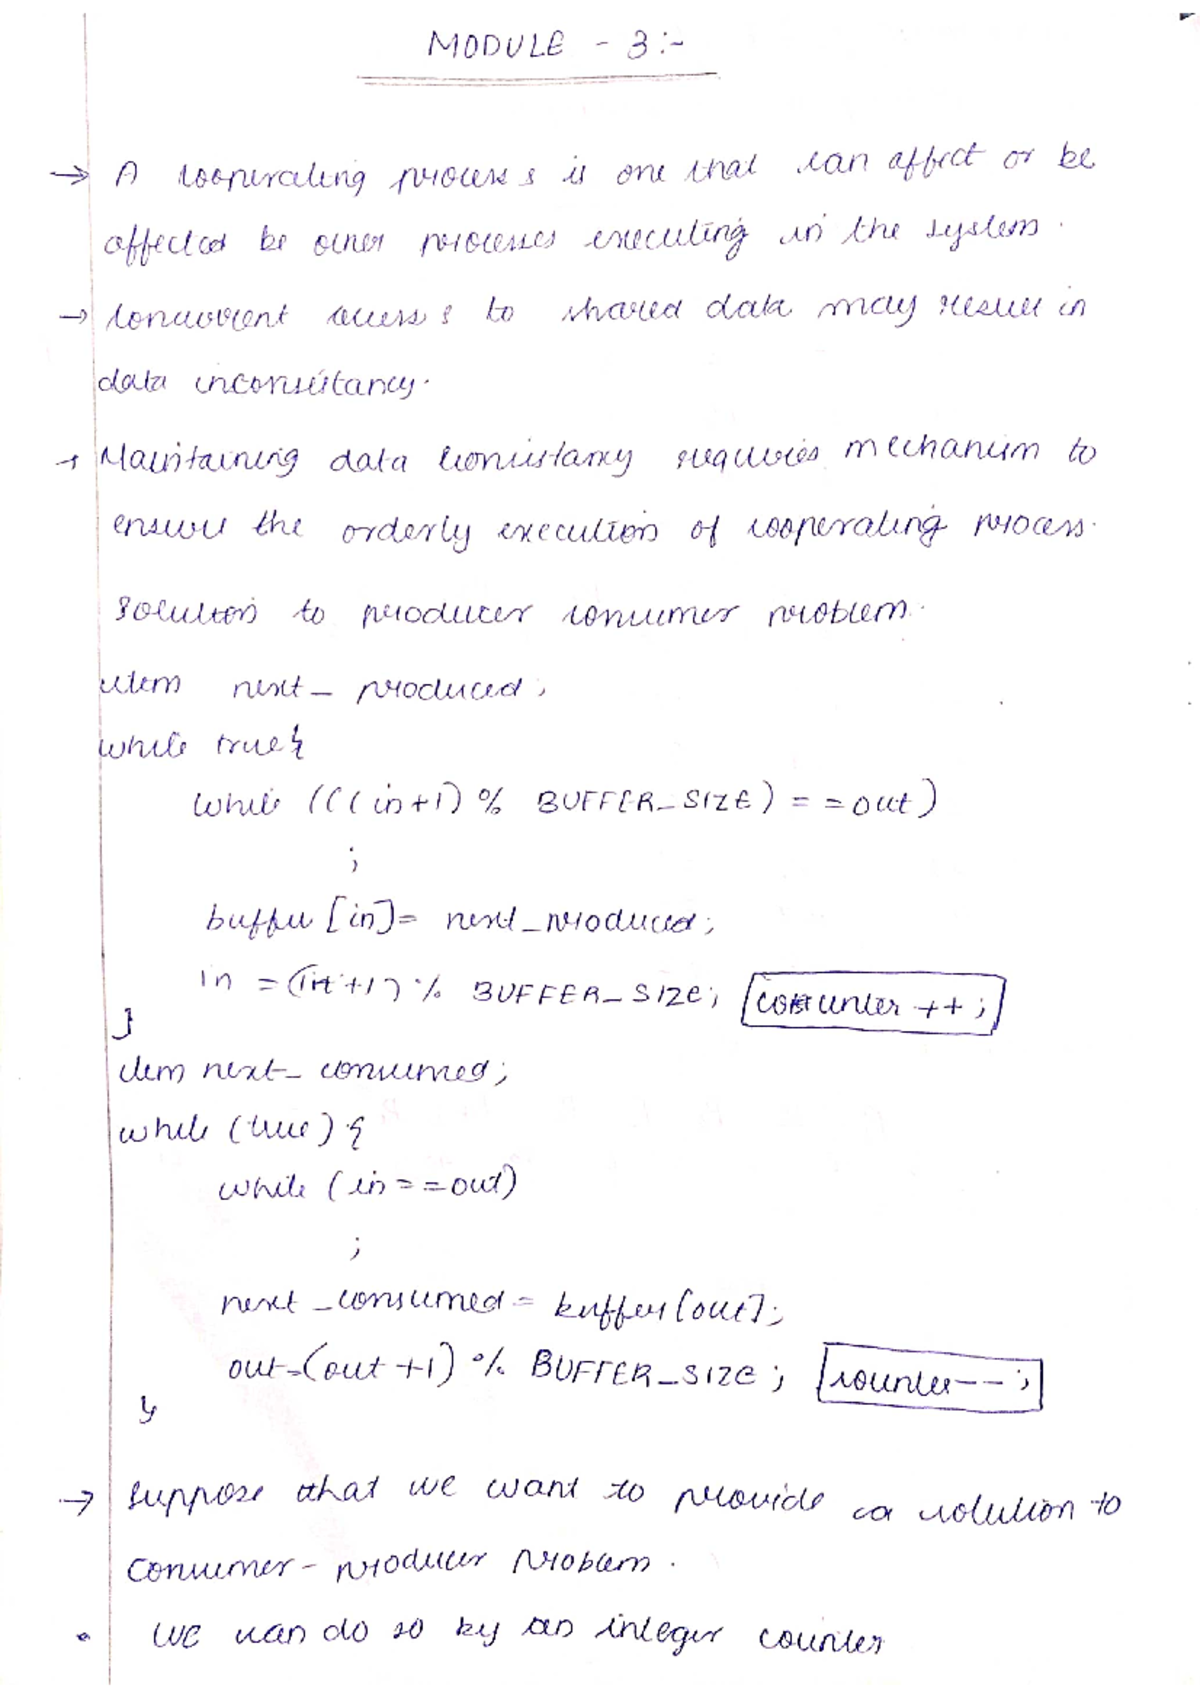 MODULE - 3 :-
→ A cooperating process is one that can affect or be
affected be other processes executing in the system.
→ Concurrent access to shared data may result in
data inconsistancy.
→ Maintaining data consistancy requires mechanism to
ensure the orderly execution of cooperating process.
Solution to producer consumer problem.
item next_produced;
while true {
while (((in+1) % BUFFER_SIZE) == out)
;
buffer [in] = next_produced;
in = (in+1) % BUFFER_SIZE; counter ++;
}
item next_consumed;
while (true) {
while (in == out)
;
next_consumed = buffer [out];
out = (out +1) % BUFFER_SIZE; counter--;
}
→ Suppose that we want to provide a solution to
Consumer - producer problem.
• We can do so by an integer counter